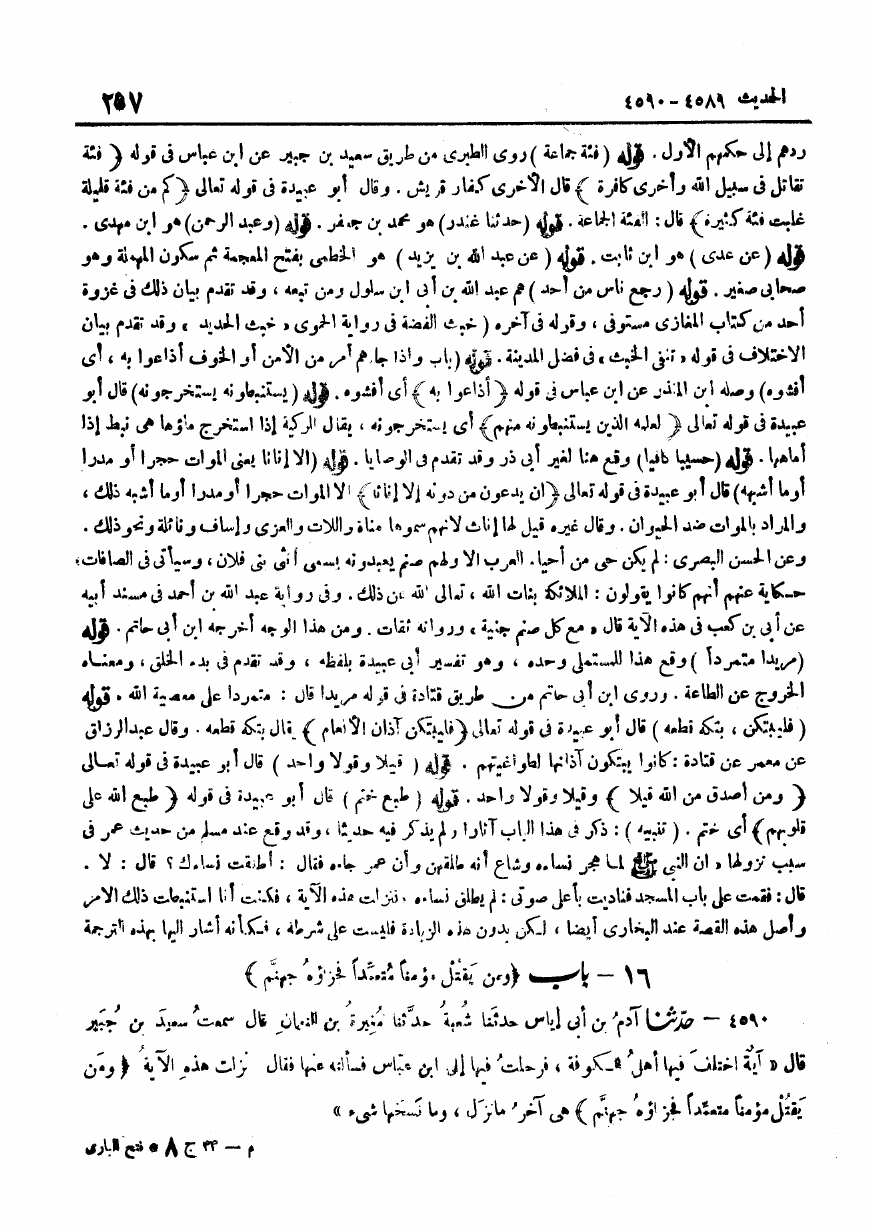 الحديث ٤٥٨٩ - ٤٥٩٠
٢٥٧
ردهم إلى حكمهم الأول . قوله ( فئة جماعة ) روى الطبرى من طريق سعيد بن جبير عن ابن عباس فى قوله ﴿ فئة
تقاتل فى سبيل الله وأخرى كافرة ﴾ قال الأخرى كفار قريش . وقال أبو عبيدة فى قوله تعالى ﴿ كم من فئة قليلة
غلبت فئة كثيرة ﴾ قال : الفئة الجماعة . قوله ( حدثنا غندر ) هو محمد بن جعفر . قوله ( وعبد الرحمن ) هو ابن مهدى .
قوله ( عن عدى ) هو ابن ثابت . قوله ( عن عبد الله بن يزيد ) هو الخطمى بفتح المعجمة ثم سكون المهملة وهو
صحابى صغير . قوله ( رجع ناس من أحد ) هم عبد الله بن أبى ابن سلول ومن تبعه ، وقد تقدم بيان ذلك فى غزوة
أحد من كتاب المغازى مستوفى ، وقوله فى آخره ( خبث الفضة فى رواية الحموى « خبث الحديد » وقد تقدم بيان
الاختلاف فى قوله « تنفى الخبث » فى فضل المدينة . قوله ( باب وإذا جاءهم أمر من الأمن أو الخوف أذاعوا به ، أى
أفشوه ) وصله ابن المنذر عن ابن عباس فى قوله ﴿ أذاعوا به ﴾ أى أفشوه . قوله ( يستنبطونه يستخرجونه ) قال أبو
عبيدة فى قوله تعالى ﴿ لعلمه الذين يستنبطونه منهم ﴾ أى يستخرجونه ، يقال الركية إذا استخرج ماؤها هى نبط إذا
أماهها . قوله ( حسيبا كافيا ) وقع هنا لغير أبى ذر وقد تقدم فى الوصايا . قوله ( إلا إناثا يعنى الموات حجرا أو مدرا
أو ما أشبهه ) قال أبو عبيدة فى قوله تعالى ﴿ إن يدعون من دونه إلا إناثا ﴾ إلا الموات حجرا أو مدرا أو ما أشبه ذلك ،
والمراد بالموات ضد الحيوان . وقال غيره قيل لها إناث لأنهم سموها مناة واللات والعزى وإساف ونائلة ونحو ذلك .
وعن الحسن البصرى : لم يكن حى من أحياء العرب إلا ولهم صنم يعبدونه يسمى أنثى بنى فلان ، وسيأتى فى الصافات ؛
حكاية عنهم أنهم كانوا يقولون : الملائكة بنات الله ، تعالى الله عن ذلك . وفى رواية عبد الله بن أحمد فى مسند أبيه
عن أبى بن كعب فى هذه الآية قال « مع كل صنم جنية » ورواته ثقات . ومن هذا الوجه أخرجه ابن أبى حاتم . قوله
( مريدا متمرداً ) وقع هذا للمستملى وحده ، وهو تفسير أبى عبيدة بلفظه ، وقد تقدم فى بدء الخلق ، ومعناه
الخروج عن الطاعة . وروى ابن أبى حاتم من طريق قتادة فى قوله مريدا قال : متمردا على معصية الله . قوله
( فليبتكن ، بتكه قطعه ) قال أبو عبيدة فى قوله تعالى ﴿ فليبتكن آذان الأنعام ﴾ يقال بتكه قطعه . وقال عبدالرزاق
عن معمر عن قتادة : كانوا يبتكون آذانها لطواغيتهم . قوله ( قيلا وقولا واحد ) قال أبو عبيدة فى قوله تعالى
﴿ ومن أصدق من الله قيلا ﴾ وقيلا وقولا واحد . قوله ( طبع ختم ) قال أبو عبيدة فى قوله ﴿ طبع الله على
قلوبهم ﴾ أى ختم . ( تنبيه ) : ذكر فى هذا الباب آثارا ولم يذكر فيه حديثا ، وقد وقع عند مسلم من حديث عمر فى
سبب نزولها « ان النبى ﷺ لما هجر نساءه وشاع أنه طلقهن وأن عمر جاءه فقال : أطلقت نساءك ؟ قال : لا .
قال : فقمت على باب المسجد فناديت بأعلى صوتى : لم يطلق نساءه . ونزلت هذه الآية ، فكنت أنا استنبطت ذلك الامر
وأصل هذه القصة عند البخارى أيضا ، لكن بدون هذه الزيادة فليست على شرطه ، فكأنه أشار اليها بهذه الترجمة
١٦ - باب ﴿ ومن يَقتُلْ مؤمناً مُتعمِّداً فجزاؤهُ جهنَّم ﴾
٤٥٩٠ - حدّثنا آدمُ بن أبى إياس حدثَنا شُعبةُ حدَّثنا مُغيرةُ بن النعمانِ قال سمعتُ سعيدَ بن جُبَير
قال « آيةٌ اختلفَ فيها أهلُ الكوفة ، فرحلتُ فيها إلى ابن عبّاس فسألته عنها فقال نزلت هذهِ الآيةُ ﴿ ومَن
يَقتُلْ مؤمناً متعمِّداً فجزاؤهُ جهنَّم ﴾ هى آخرُ ما نزَل ، وما نَسخَها شىء »
م - ٣٣ ج ٨ * فتح البارى